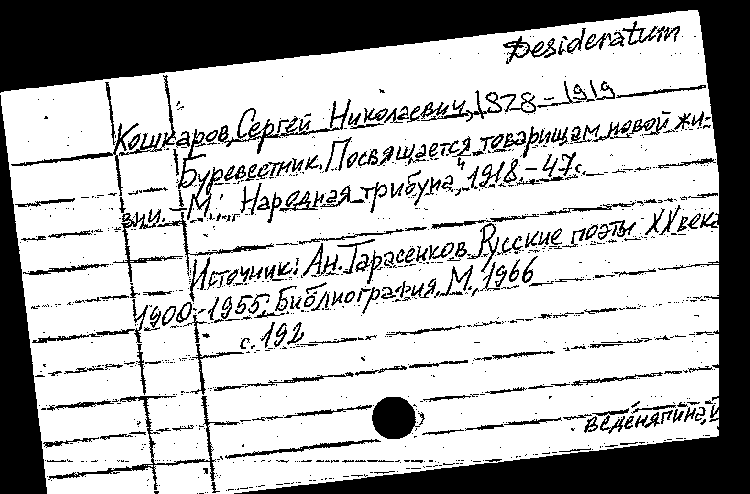 Desideratum
Кошкаров, Сергей Николаевич, 1878-1919
Буревестник. Посвящается товарищам новой жи-
зни. - М.: „Народная трибуна", 1918. - 47с.
Источник: Ан. Тарасенков Русские поэты XX века
1900-1955: Библиография. М., 1966
с. 192
Веденяпина, И